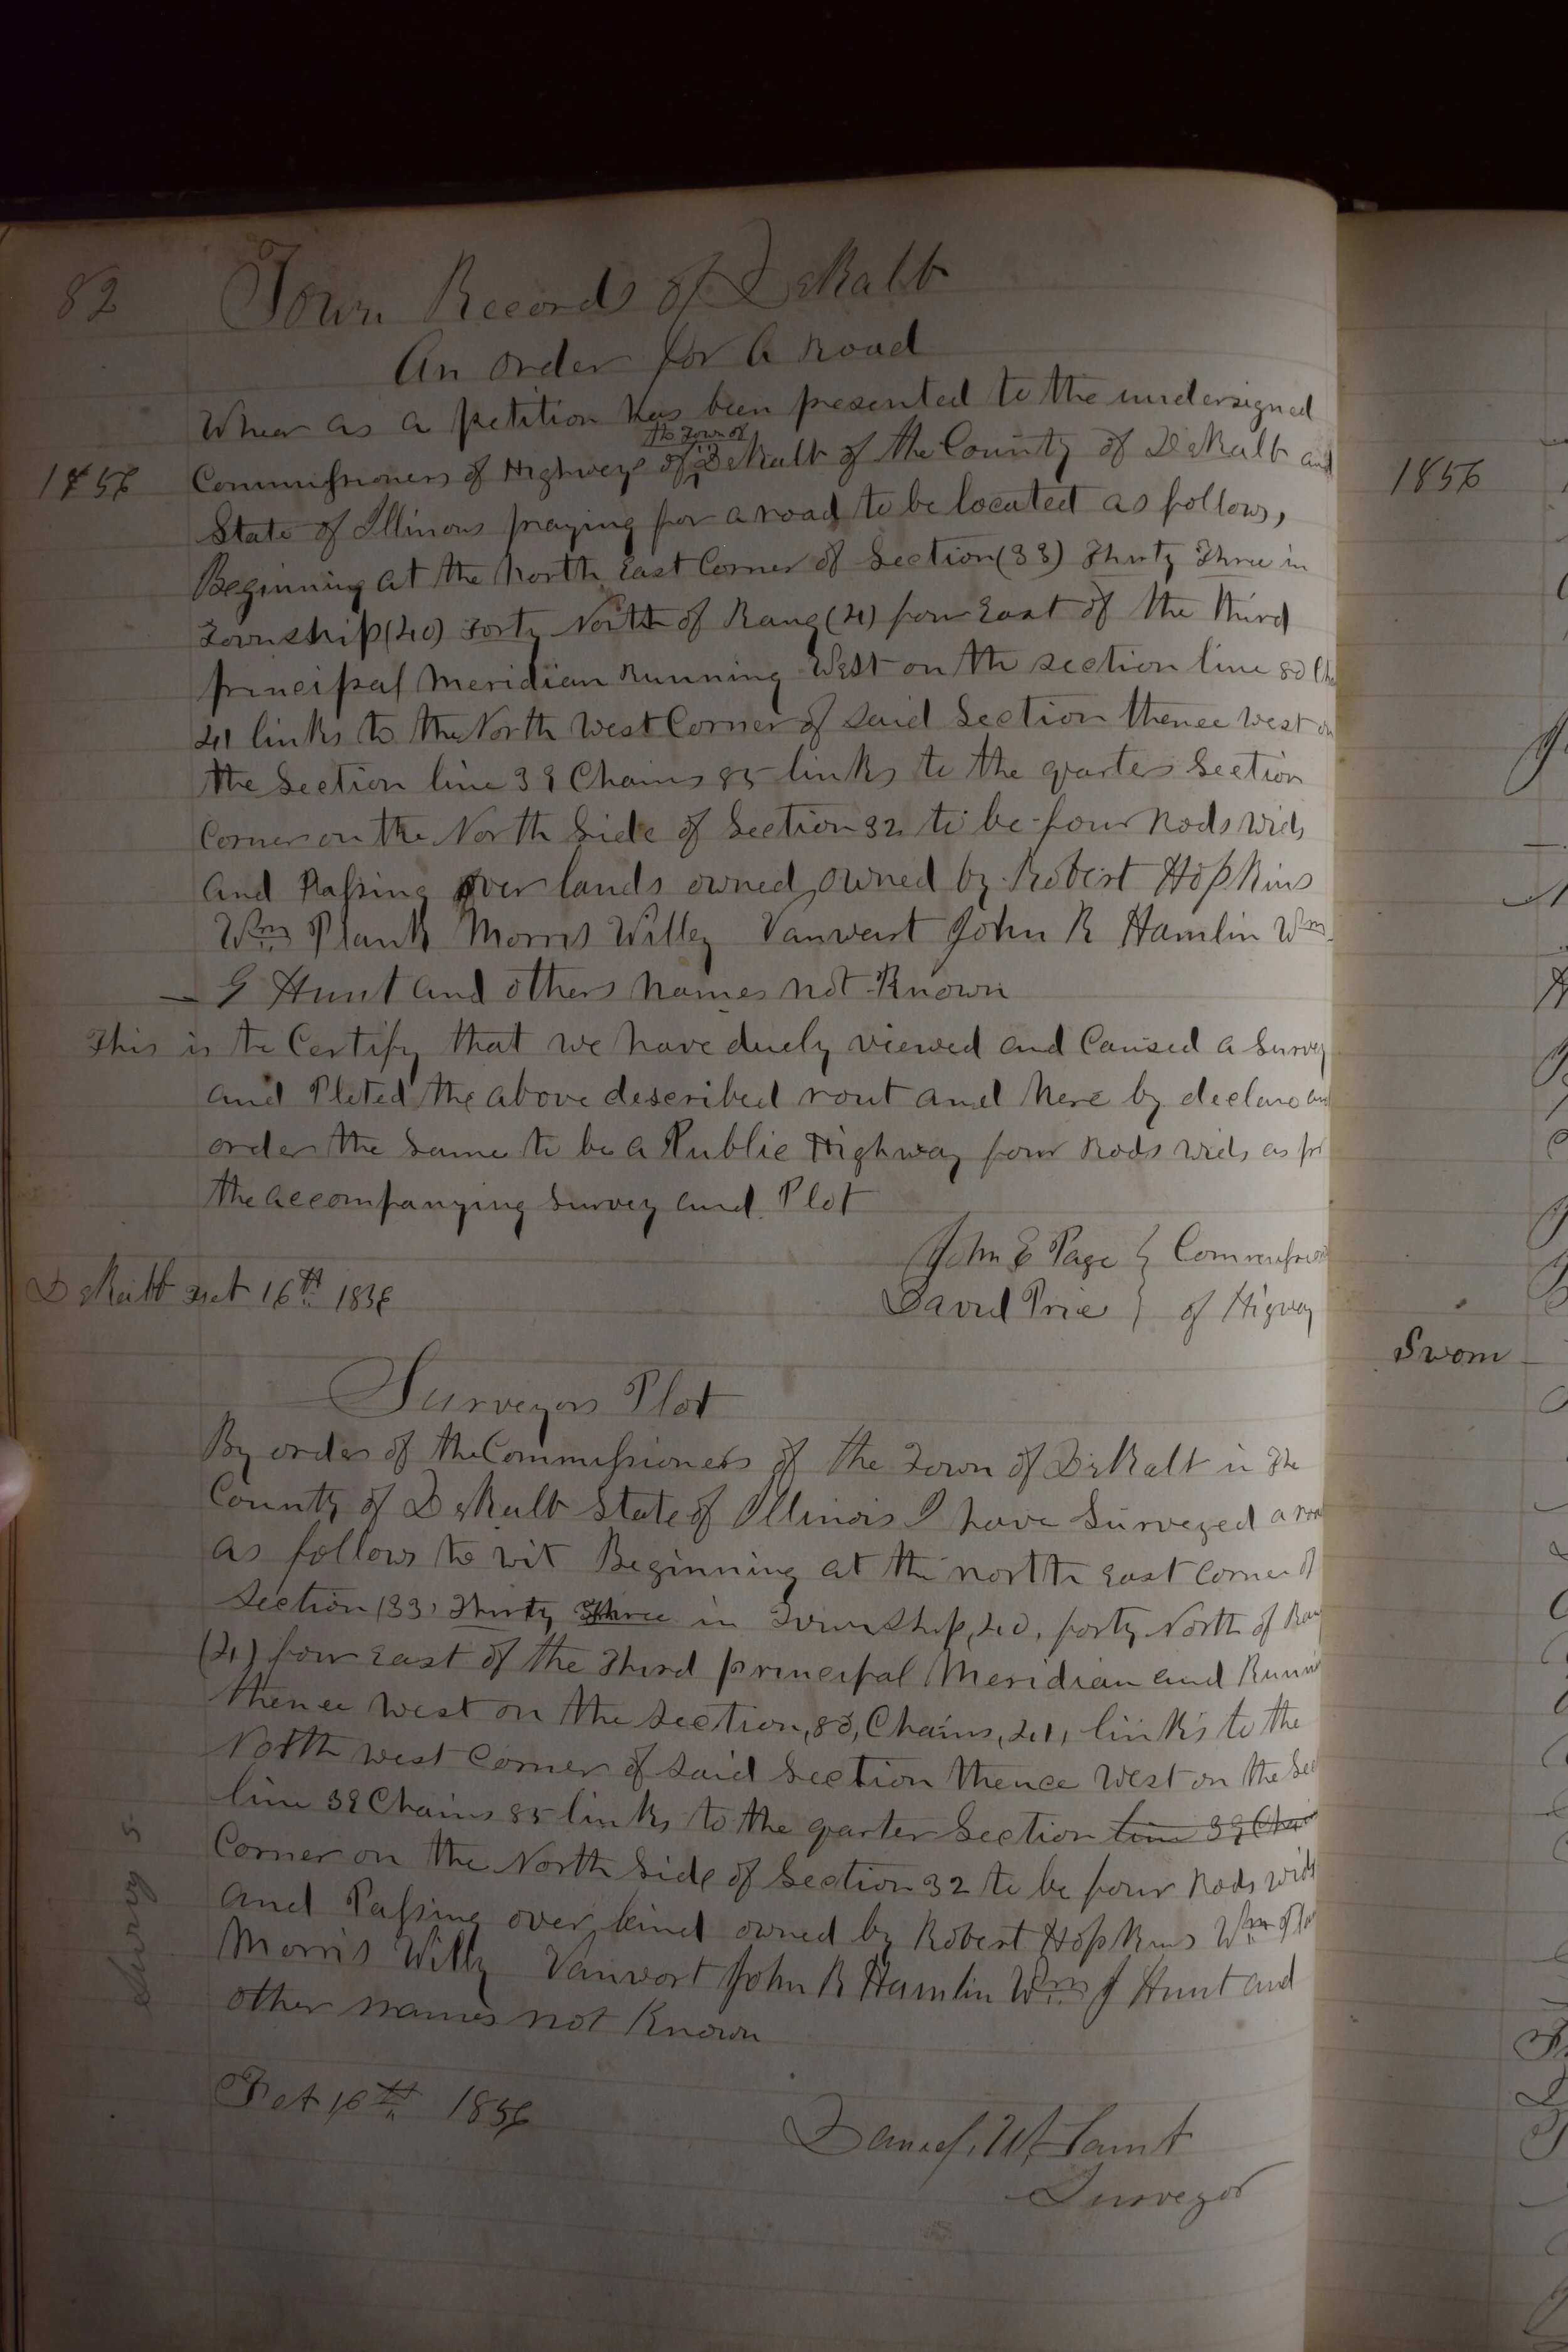 82 Town Records of DeKalb
An order for a Road
Wheir as a petition has been presented to the undersigned
the Town of
1856 Commissioners of Highweys of DeKalb of the County of DeKalb and
State of Illinois praying for a road to be located as follows,
Beginning at the North East Corner of Section (33) Thirty Three in
Township (40) Forty North of Rang (4) four East of the third
principal Meridian Running West on the section line 80
41 links to the North West Corner of said Section thence West on
the Section line 39 Chains 85 links to the quarter Section
Corner on the North Side of Section 32 to be four Rods wide
and Passing over lands owned owned by Robert Hopkins
Wm Plank Morris Willey Vanwert John R Hamlin Wm
G Hunt and others names not Known
This is to Certify that we have duely viewed and Caused a Survey
and Ploted the above described rout and here by declare and
order the same to be a Public Highway four Rods wide as
the accompanying Survey and Plot
John E Page } Commissioners
DeKalb 16th 1856 David Price } of Higway
Surveyors Plot
By order of the Commissioners of the Town of DeKalb in the
County of DeKalb State of Illinois I have Surveyed a
as follows to wit Beginning at the north East Corner of
Section (33) Thirty Three in Township, 40, forty North of
(4) four East of the Third principal Meridian and
thence West on the Section, 80, Chains, 41, links to the
North west Corner of said Section thence West on the
line 39 Chains 85 links to the quarter Section line 39
Corner on the North Side of Section 32 to be four Rods wide
and Passing over land owned by Robert Hopkins Wm
Morris Willy Vanwort John R Hamlin Wm J Hunt and
other names not Known
16th 1856
Daniel W Lamb
Surveyor
Survy 5
1856
Sworn